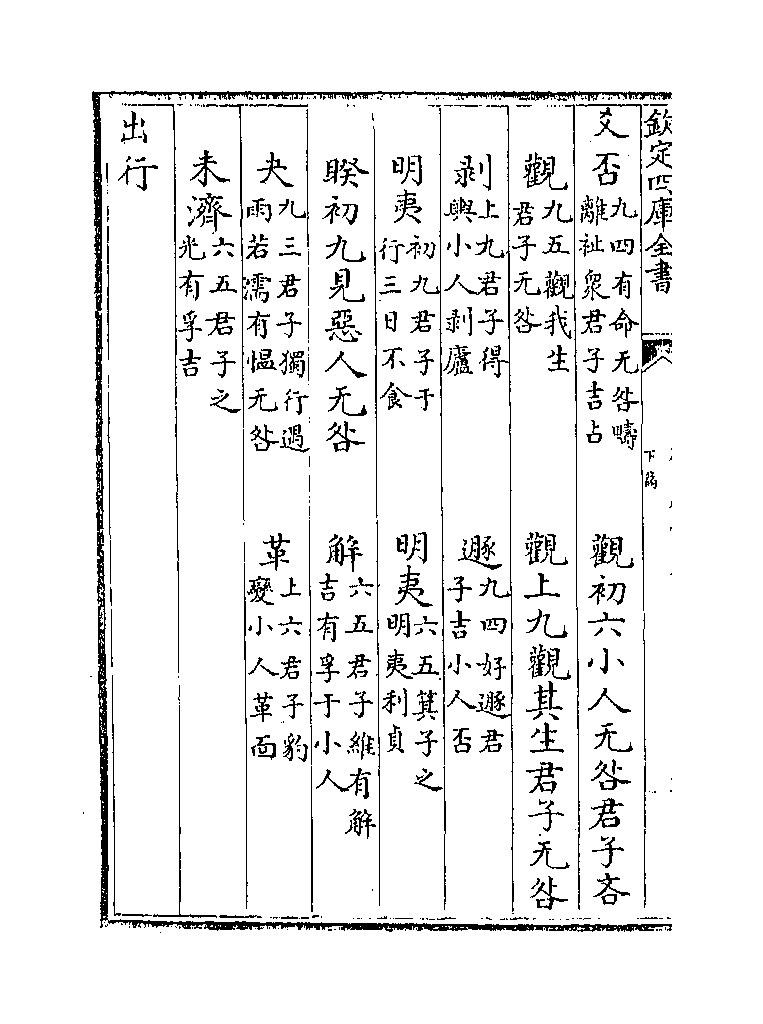 欽定四庫全書
下篇
爻 否九四有命无咎疇離祉衆君子吉占 觀初六小人无咎君子吝
觀九五觀我生君子无咎 觀上九觀其生君子无咎
剥上九君子得輿小人剥廬 遯九四好遯君子吉小人否
明夷初九君子于行三日不食 明夷六五箕子之明夷利貞
睽初九見惡人无咎 解六五君子維有解吉有孚于小人
夬九三君子獨行遇雨若濡有愠无咎 革上六君子豹變小人革面
未濟六五君子之光有孚吉
出行